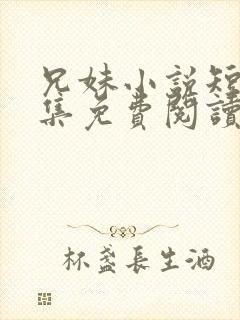 兄妹小説短
集免費閱讀
杯盞長生酒